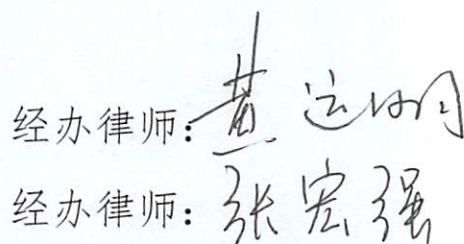 经办律师：黄运明
经办律师：张宏强